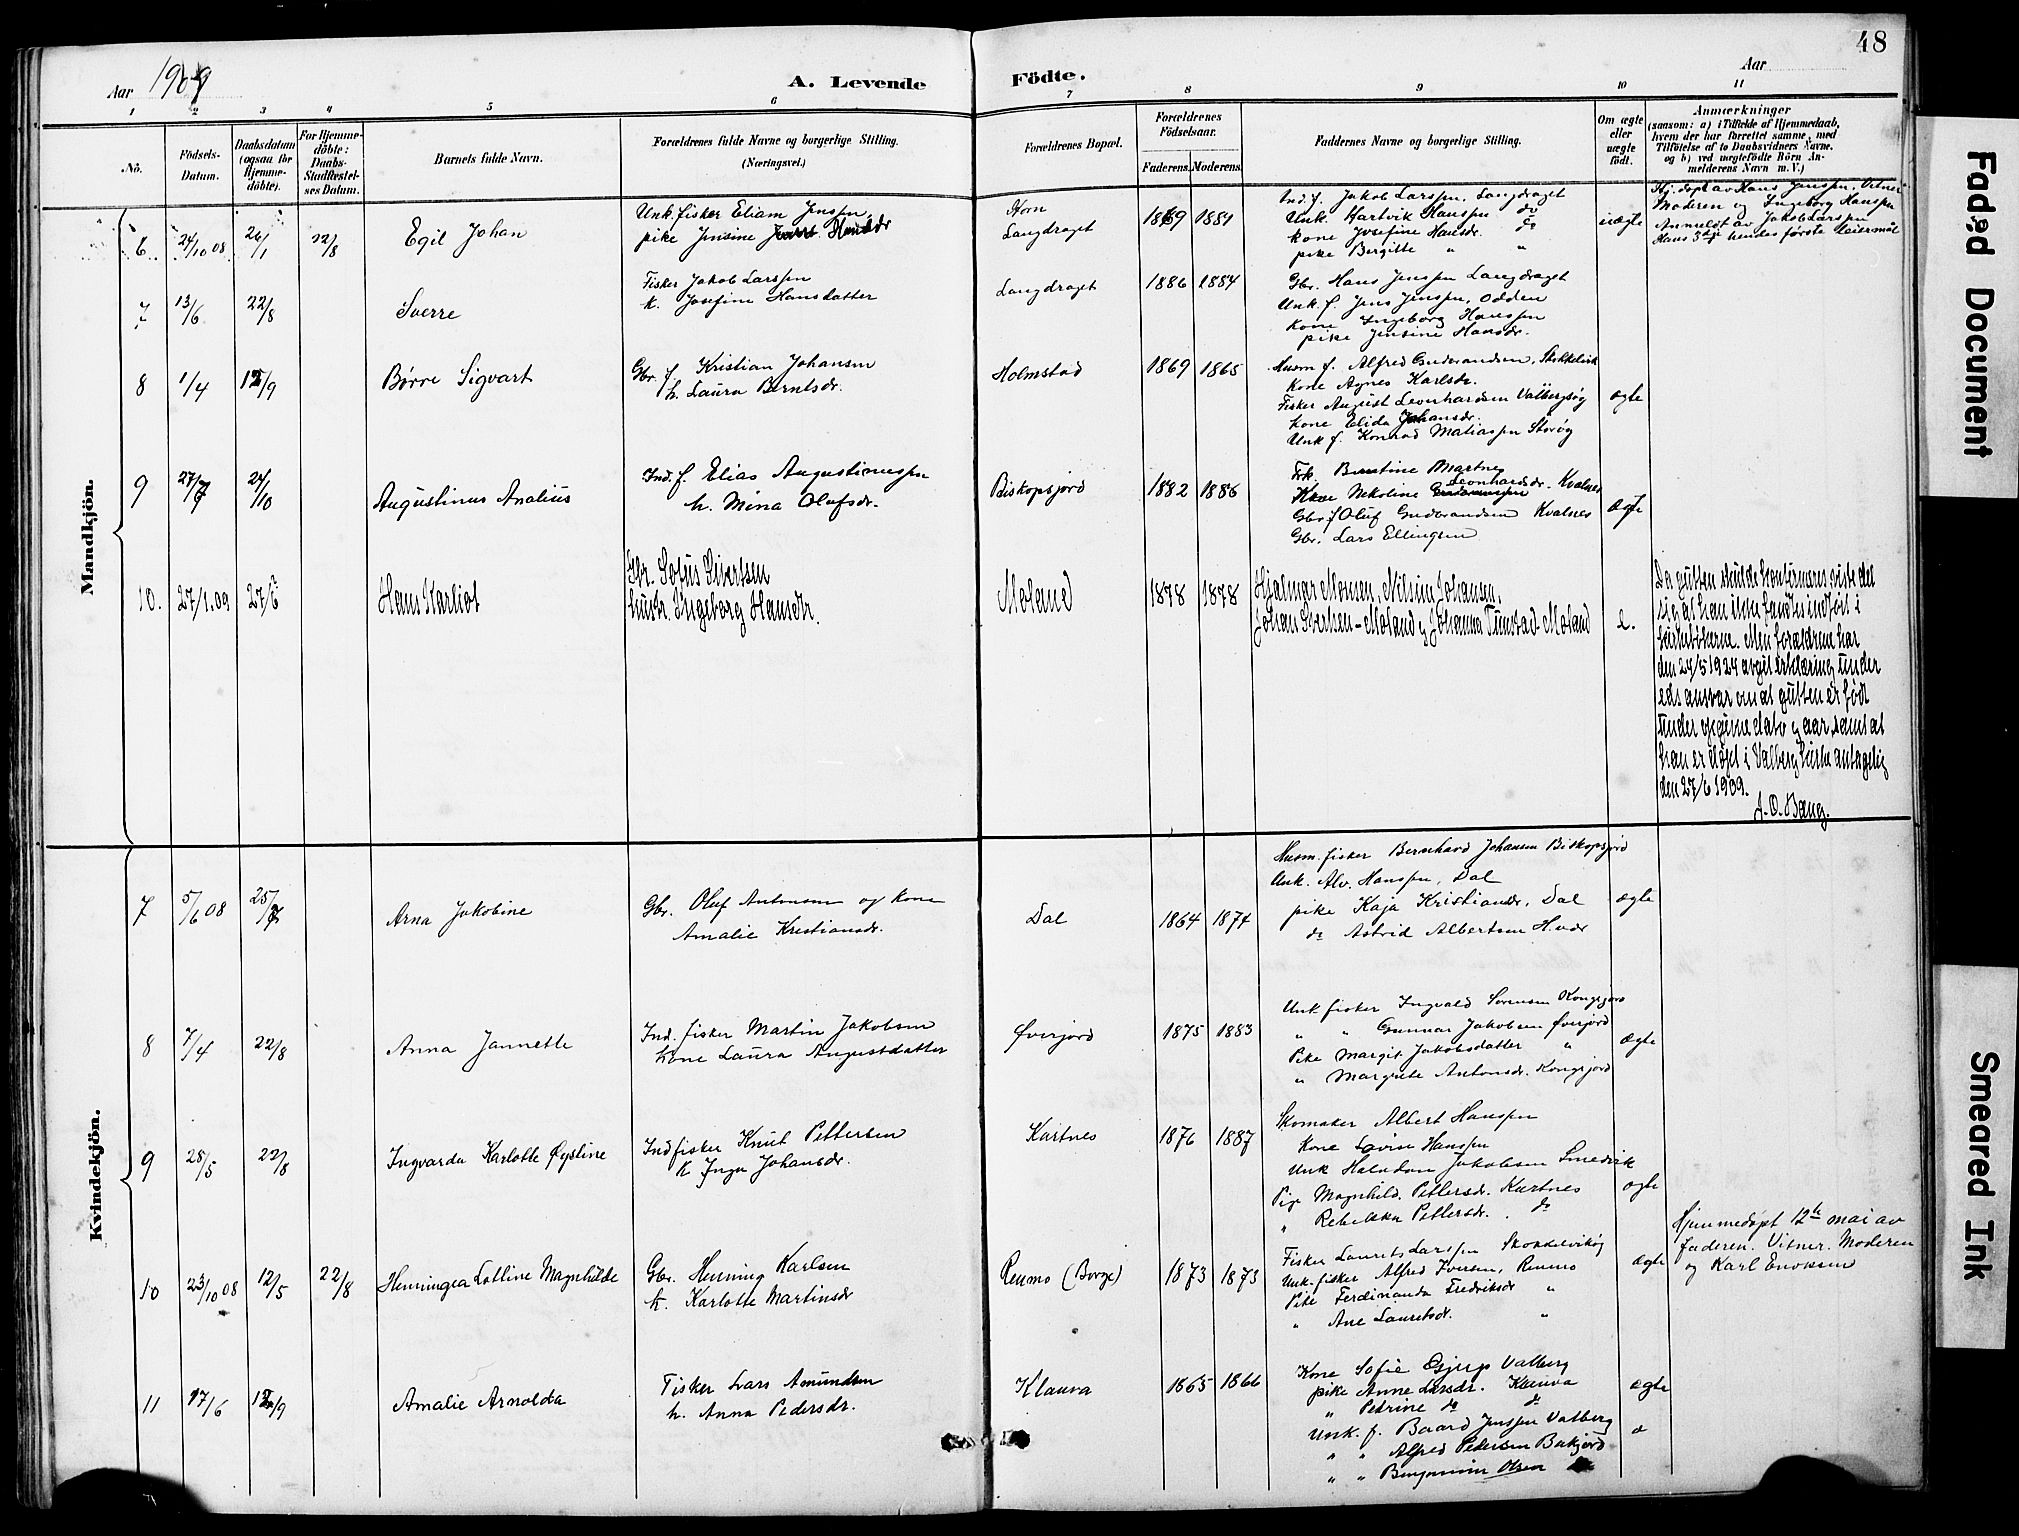 48
Aar 1909
A. Levende Födte.
Aar
1 2 3 4 5 6 7 8 9 10 11
No.
Födsels-Datum.
Daabsdatum (ogsaa for Hjemme-döbte).
For Hjemme-döbte: Daabs-Stadfæstel-ses Datum.
Barnets fulde Navn.
Forældrenes fulde Navne og borgerlige Stilling.
(Næringsvei.)
Forældrenes Bopæl.
Forældrenes Födselsaar.
Faderens. Moderens.
Faddernes Navne og borgerlige Stilling.
Om ægte eller uægte födt.
Anmærkninger
(saasom: a) i Tilfælde af Hjemmedaab,
hvem der har forrettet samme, med
Tilföielse af to Daabsvidners Navne.
og b) ved uægtefödte Börn An-
melderens Navn m. V.)
Mandkjön.
6. 24/10 08 26/1 22/8 Egil Johan
Unk. fisker Eliam Jensen,
pike Jensine Hansdr
Horn
Langdraget
1869 1881
Ind. f. Jakob Larssen, Langdraget
Unk. Hartvik Hanssen do
Kone Josefine Hansdr. do
pike Bergitte " "
uægte
Hj. døpt av Hans Jenssen, Vitner
Moderen og Ingeborg Hanssen
Anmeldt av Jakob Larssen
Hans 3die hendes første leiermål
7 13/6 22/8 Sverre
Fisker Jakob Larssen
k. Josefine Hansdatter
Langdraget
1886 1884
Gbr. Hans Jenssen Langdraget
Unk. f. Jens Jenssen, Odden
Kone Ingeborg Hanssen
pike Jensine Hansdr.
8 1/4 12/9 Børre Sigvart
Gbr. f. Kristian Johansen
h. Laura Berntsdr.
Holmstad
1869 1865
Husm f. Alfred Gudbrandsen,
Kone Agnes Karlsdr.
Fisker August Leonhardsen Valbergsøg
Kone Elida Johansdr.
Unk f. Konrad Matiassen Storøg
ægte
9 27/7 24/10 Augustinus Analius
Ind. f. Elias Augustinussen
h. Mina Olufsdr.
Biskopsjord
1882 1886
Frk. Berntine Martnes
Kone Nekoline Leonhardsdr. Kvalnes
Gbr f Oluf Gudbrandsen Kvalnes
Gbr. Lars Ellingsen
Ægte
10. 27/1.09 27/6 Hans Karliot
Gbr. Sofus Sivertsen
hustr. Ingeborg Hansdtr.
Moland
1878 1878
Hjalmar Monsen, Nilsine Johansen,
Johan Sivertsen-Moland og Johanna Tunstad-Moland
e.
Da gutten skulde konfirmeres viste det
sig at han ikke fandtes indført i
kirkebökerne. Men forældrene har
den 24/5 1924 avgit erklæring under
eds ansvar om at gutten er født
under opgivne dato og aar, samt at
han er døpt i Valberg kirke antagelig
den 27/6 1909.
A. O. Bang.
Kvindekjön.
7 5/6 08 25/7 Arna Jakobine
Gbr. Oluf Antonsen og kone
Amalie Kristiansdr.
Dal
1864 1874
Husm. fisker Bernhard Johansen Biskopsjord
Unk. Alv. Hanssen, Dal
pike Kaja Kristiansdr, Dal
do Astrid Albertsen
ægte
8 7/4 22/8 Anna Jannette
Ind. fisker Martin Jakobsen
kone Laura Augustdatter
Øverjord
1875 1883
Unk fisker Ingvald Sørensen Kongsjord
" " Gunnar Jakobsen Øverjord
Pike Margit Jakobsdatter "
" Margrete Antonsdr. Kongsjord
Ægte
9 28/5 22/8 Ingvarda Karlotte Øysline
Indfisker Knut Pettersen
K Inga Johansdr.
Kartnes
1876 1887
Skomaker Albert Hanssen
Kone Lovise Hanssen
Unk Halvdan Jakobsen Smedvik
Pige Magnhild. Pettersdr. Kartnes
" Rebekka Pettersdr. do
ægte
10 23/10 08 12/5 22/8 Henningea Lolline Magnhilde
Gbr. Henning Karlsen
k. Karlotte Martinsdr
Reumo (Borge)
1873 1873
Fisker Laurits Larssen
Unk. fisker Alfred Iversen, Reumo
Pike Ferdinanda Fredriksdr "
" Ane Lauritsdr. "
Ægte
Hjemmedøpt 12te mai av
faderen. Vitner. Moderen
og Karl Enoksen
11 17/6 12/9 Amalie Arnolda
Fisker Lars Amundsen
h. Anna Pedersdr.
Klauva
1865 1866
Kone Sofie Valberg
pike Anne Larsdr. Klauva
" Petrine do do
Unk. f. Baard Jenssen Valberg
" " Alfred Pedersen
" " Benjamin Olsen
ægte
Faded Document
Smeared Ink